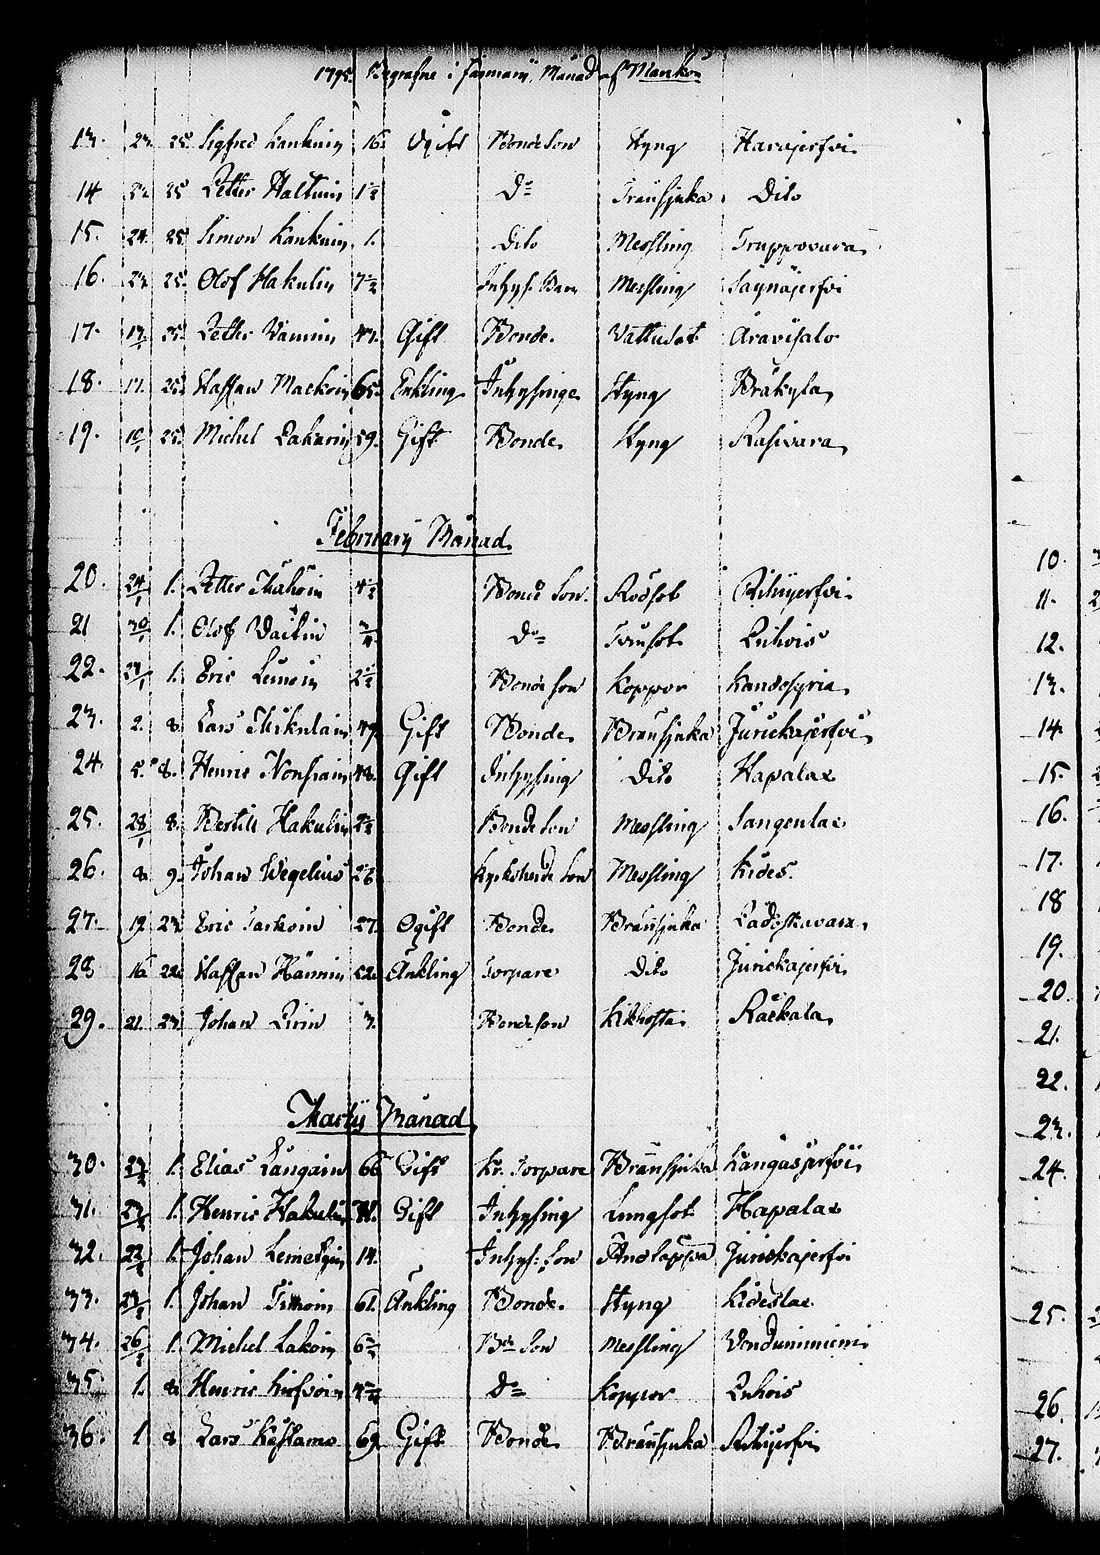 1795. Begrafne i January Månad af Mankön
13. 23. 25. Sigfred Kankuin 16. Ogift Bonde Son Styng Harajerfvi
14 25 Petter Haltuin 1½ Do Bränsjuka Dito
15. 24. 25. Simon Kankuin 1. Dito Messling Truppovara
16. 25. Olof Hakulin 7½ Inhys. Barn Messling Saynäjerfvi
17. 25. Petter Vannin 47. Gift Bonde. Vattusot Aravisalo
18. 17. 25. Staffan Mackoin 65. Enkling Inhysinge Styng Bräkyla
19. 25. Michel Pakarin 59. Gift Bonde Styng Rasivara
February Månad
20. 24/1 1. Petter Mähöin 4½ Bonde Son. Rödsot Riihijerfvi
21 30/1 1. Olof Vaitin 3/4 Do Tvinsot Puhois
22. 1. Eric Leinoin 2½ Bonde Son Koppor Kandesyria
23. 2. 8. Lars Mikulain 49 Gift Bonde Bränsjuka Jurickajerfvi
24 5. 8. Henric Nonhain 48. Gift Inhysing Dito Hapalax
25. 28/1 8. Bertill Hakulin 2½ Bonde Son Messling Sangenlax
26. 8. 9. Johan Wegelius Kyrkoherde Son Messling Kides.
27. 19 23. Eric Tarkoin 27. Ogift Bonde Bränsjuka
28 16 22. Staffan Hännin 52. Änkling Torpare Dito Jurickajerfvi
29. 21. 23. Johan Pirin 3. Bonde Son Kikhosta Räckala
Martij Månad
30. 1. Elias Kangain 66 Gift Kr. Torpare Bränsjuka Kangasjerfvi
31. 1. Henric Hakulin Gift Inhysing Lungsot Hapalax
32. 1. Johan Lemetyin 14. Inhys. Son Andtäppa Jurickajerfvi
33. 1. Johan Timoin 61. Änkling Bonde. Styng Kideslax
34. 26/2 1. Michel Lakoin Bde Son Messling Venduniniemi
35. 1. 8. Henric Do Koppor Puhois
36. 1 8 Lars Kästama 69. Gift Bonde Bränsjuka Riihijerfvi
10.
11.
12.
13.
14
15.
16.
17.
18
19.
20.
21.
22.
23.
24.
25.
26.
27.